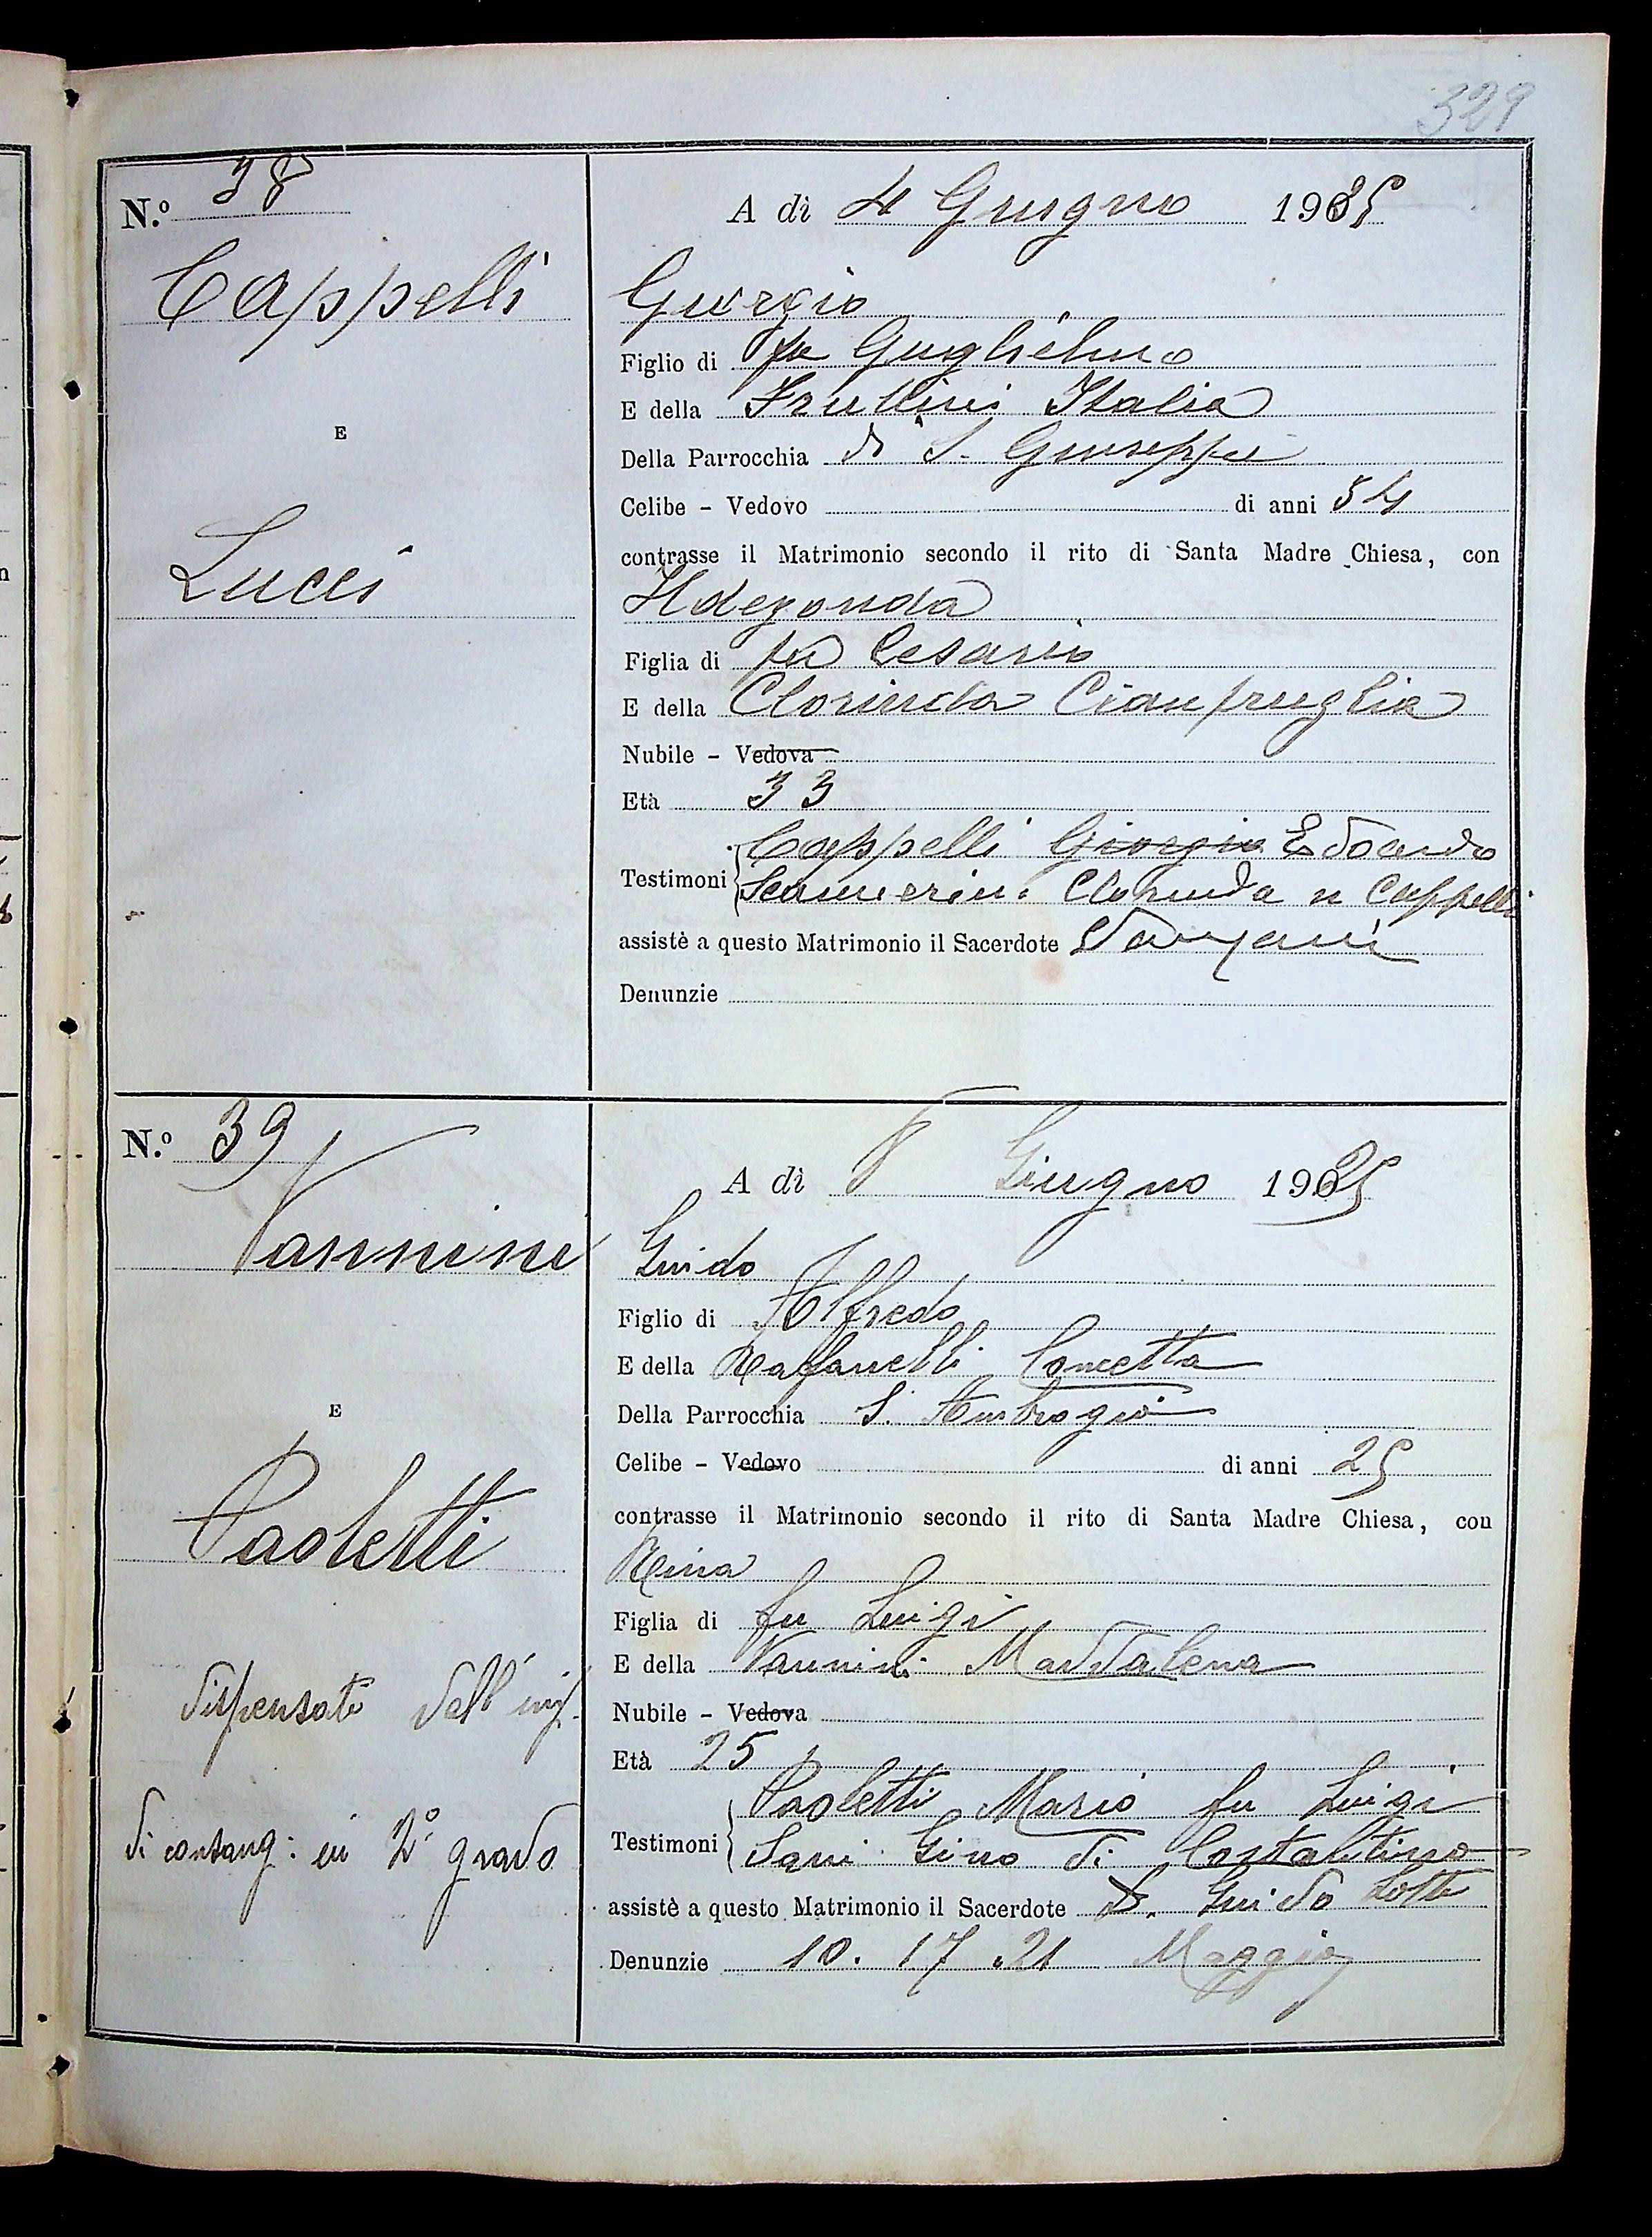 329
N.º 38
A dì 4 Giugno 1925
Cappelli
E
Lucci
Giorgio
Figlio di fu Guglielmo
E della Frullini Italia
Della Parrocchia di S. Giuseppe
Celibe - Vedovo di anni 54
contrasse il Matrimonio secondo il rito di Santa Madre Chiesa, con
Ildegonda
Figlia di fu Cesario
E della Clorinda
Nubile - Vedova
Età 33
Testimoni Cappelli Giorgio Edoardo
Clorinda n Cappelli
assistè a questo Matrimonio il Sacerdote
Denunzie
N.º 39
A dì Giugno 1925
Vannini
E
Paoletti
dispensato dall'imp.
di consang: in 2º grado
Guido
Figlio di Alfredo
E della Raffanelli Concetta
Della Parrocchia S. Ambrogio
Celibe - Vedovo di anni 25
contrasse il Matrimonio secondo il rito di Santa Madre Chiesa, con
Figlia di fu Luigi
E della Vannini Maddalena
Nubile - Vedova
Età 25
Testimoni Paoletti Mario fu Luigi
Sani Gino di Costantino
assistè a questo Matrimonio il Sacerdote D. Guido Lotti
Denunzie 10. 17. 21 Maggio